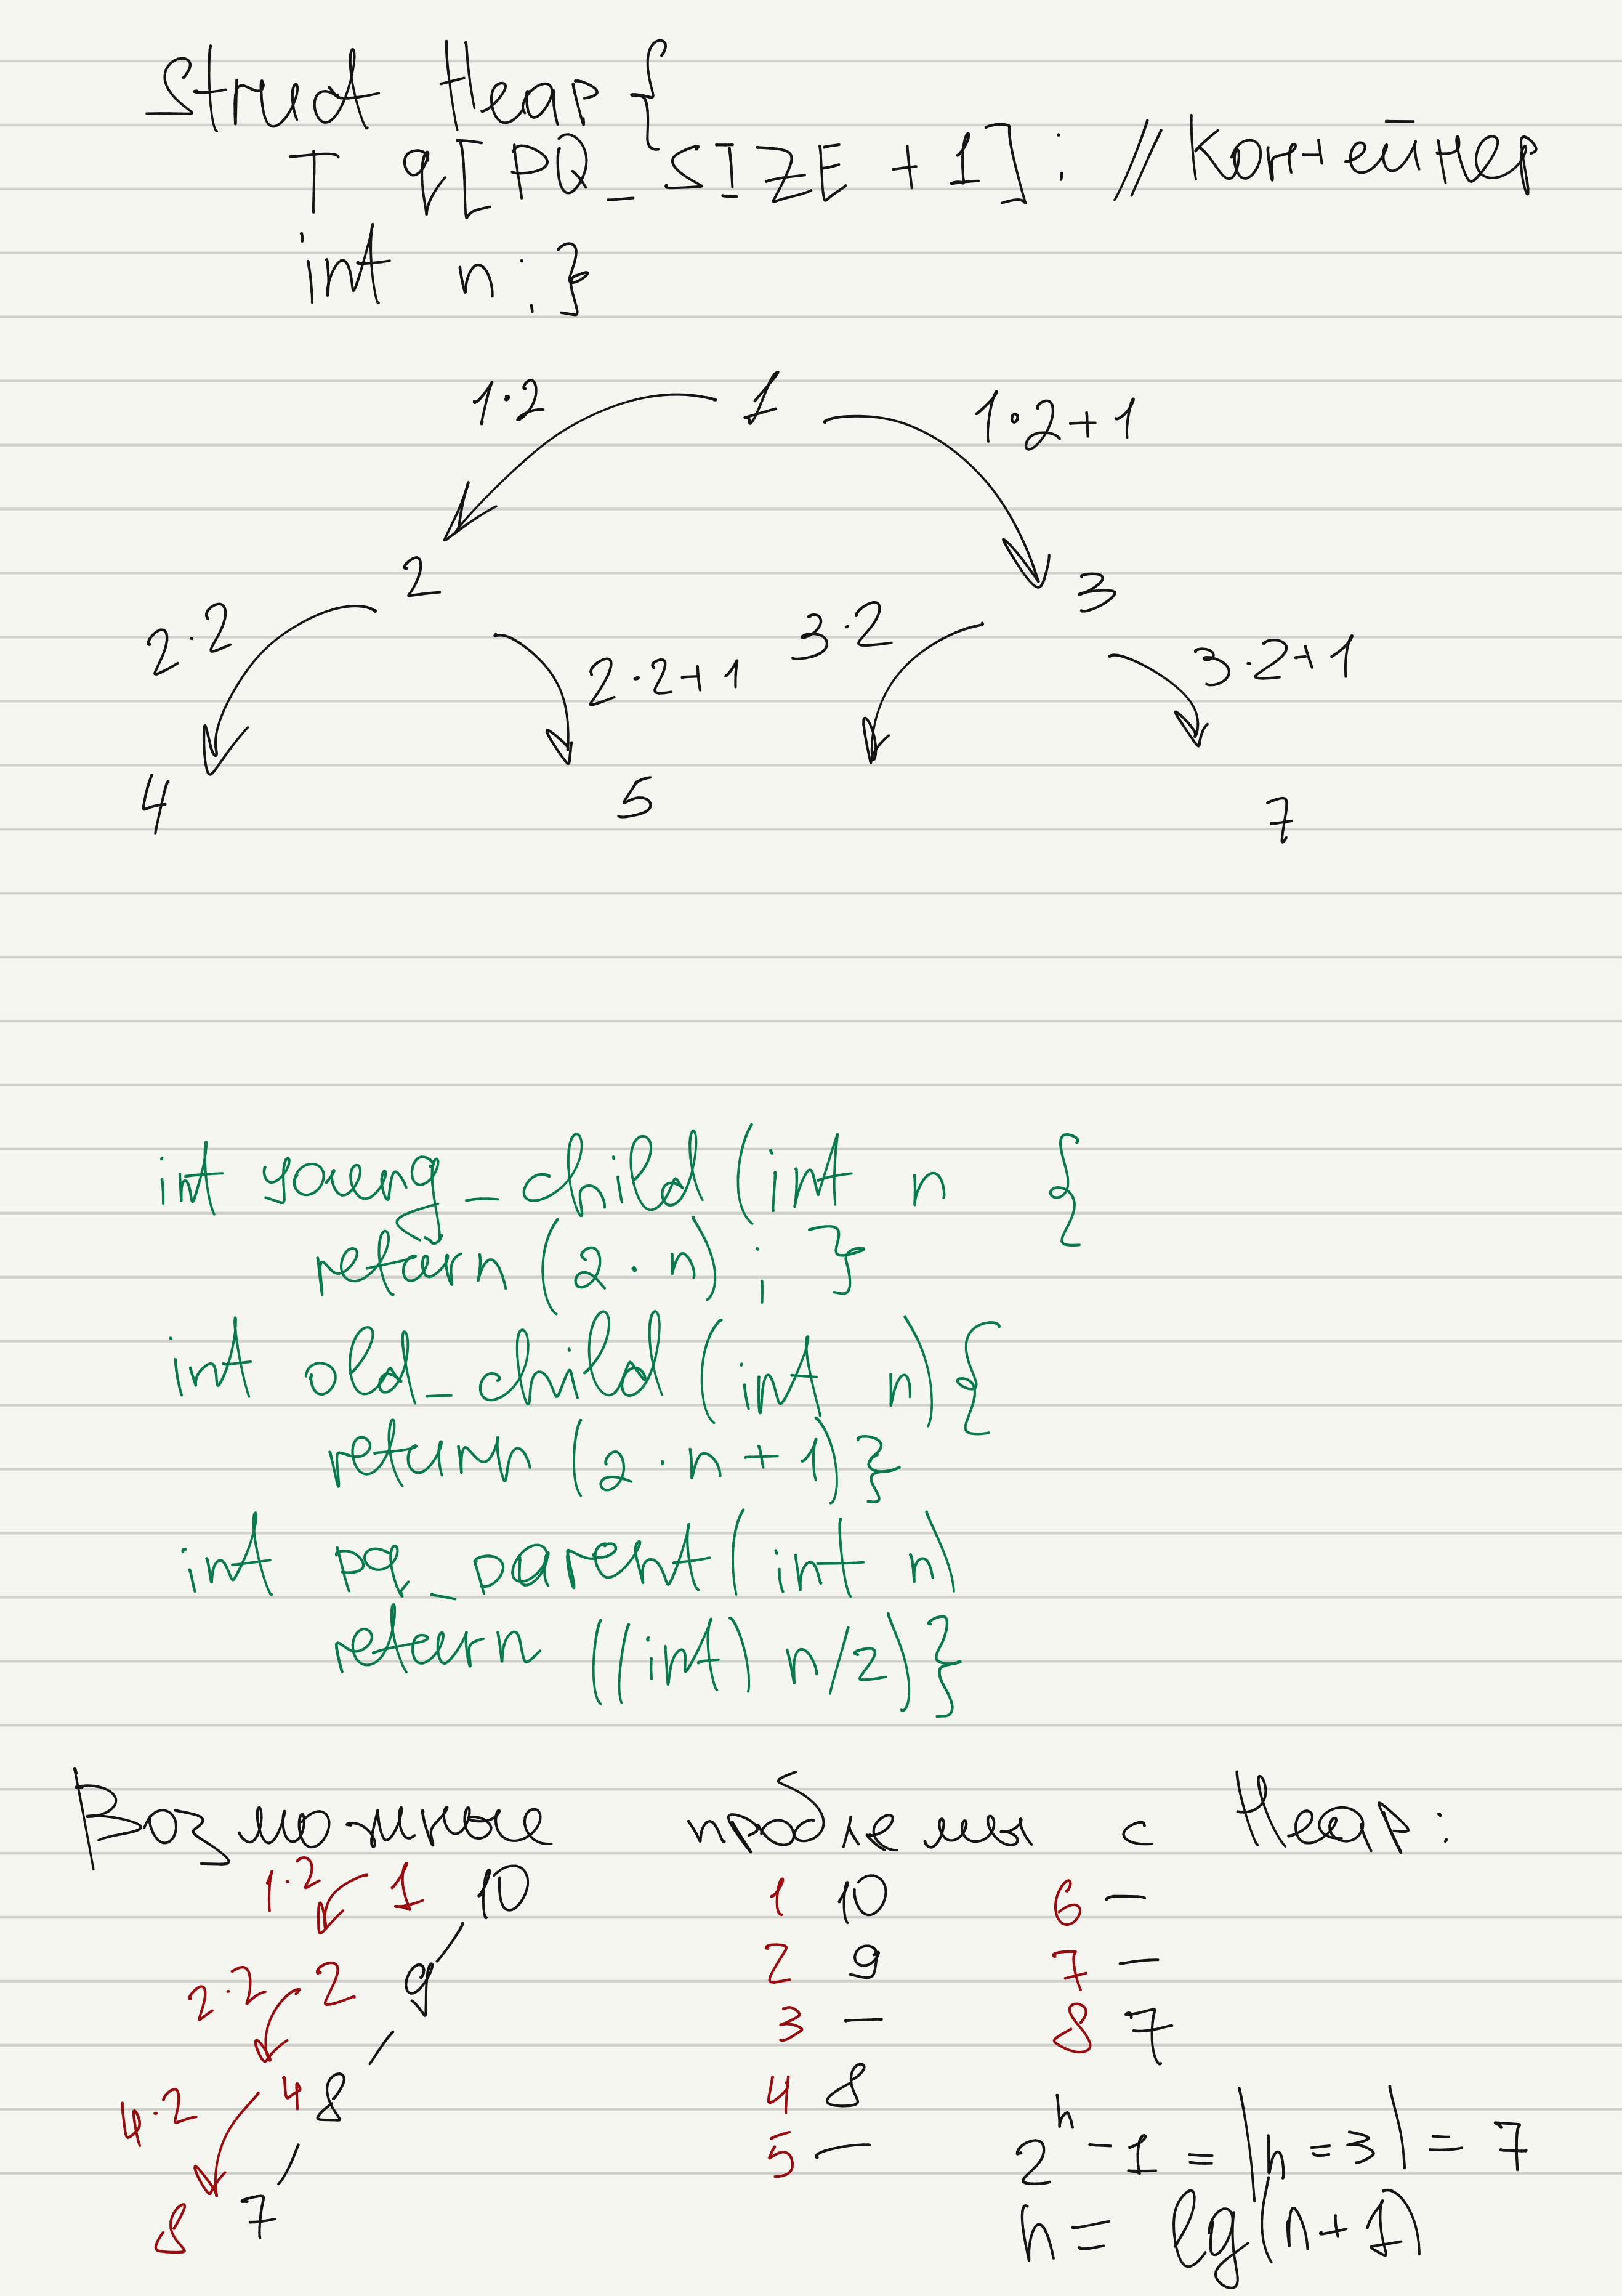 Struct Heap {
T q[PQ_SIZE + 1]; // Контейнер
int n; }
1·2 1 1·2+1
2 3
2·2 2·2+1 3·2 3·2+1
4 5 7
int young_child(int n {
return (2 · n) ; }
int old_child (int n) {
return (2 · n + 1) }
int pq_parent( int n)
return ((int) n/2) }
Возможные проблемы с Heap:
1·2 1 10 1 10 6 —
2·2 2 9 2 9 7 —
3 — 8 7
4·2 4 8 4 8
5 — 2^h - 1 = |h = 3| = 7
8 7 h = lg(n+1)